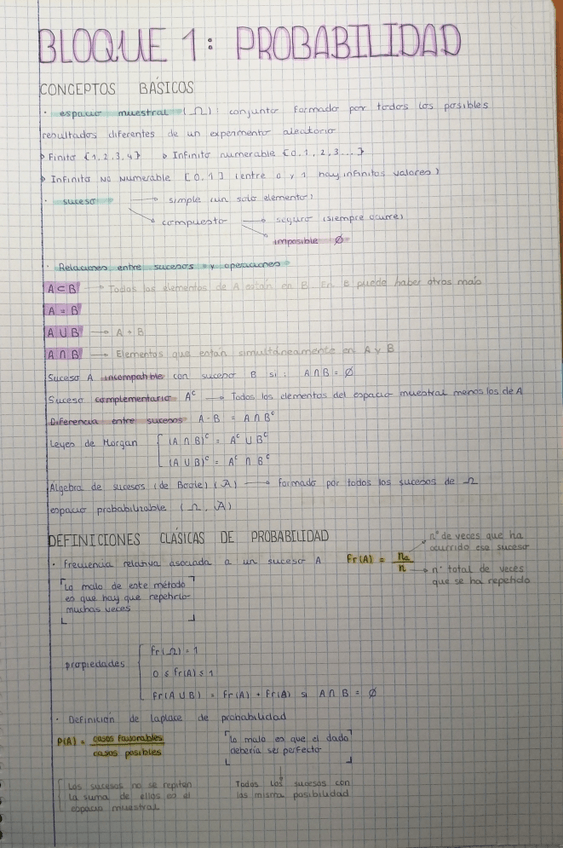 BLOQUE 1: PROBABILIDAD
CONCEPTOS BÁSICOS
· espacio muestral (Ω): conjunto formado por todos los posibles
resultados diferentes de un experimento aleatorio
Finito {1,2,3,4} Infinito numerable {0,1,2,3...}
Infinito no numerable [0,1] (entre 0 y 1 hay infinitos valores)
· suceso → simple (un solo elemento)
compuesto → seguro (siempre ocurre)
imposible ∅
· Relaciones entre sucesos y operaciones
A⊂B → Todos los elementos de A están en B. En B puede haber otros más
A = B
A ∪ B → A + B
A ∩ B → Elementos que están simultáneamente en A y B
Suceso A incompatible con suceso B si: A∩B = ∅
Suceso complementario Aᶜ → Todos los elementos del espacio muestral menos los de A
Diferencia entre sucesos A-B = A∩Bᶜ
Leyes de Morgan (A ∩ B)ᶜ = Aᶜ ∪ Bᶜ
(A ∪ B)ᶜ = Aᶜ ∩ Bᶜ
Algebra de sucesos (de Boole) (A) → formado por todos los sucesos de Ω
espacio probabilizable (Ω, A)
DEFINICIONES CLÁSICAS DE PROBABILIDAD
· Frecuencia relativa asociada a un suceso A Fr(A) = na/n
→ nº de veces que ha
ocurrido ese suceso
→ nº total de veces
que se ha repetido
Lo malo de este método
es que hay que repetirlo
muchas veces
propiedades
fr(Ω) = 1
0 ≤ fr(A) ≤ 1
Fr(A∪B) = Fr(A) + Fr(A) si A∩B = ∅
· Definición de Laplace de probabilidad
P(A) = casos favorables / casos posibles
lo malo es que el dado
debería ser perfecto
Los sucesos no se repiten
la suma de ellos es el
espacio muestral
Todos los sucesos con
las misma posibilidad